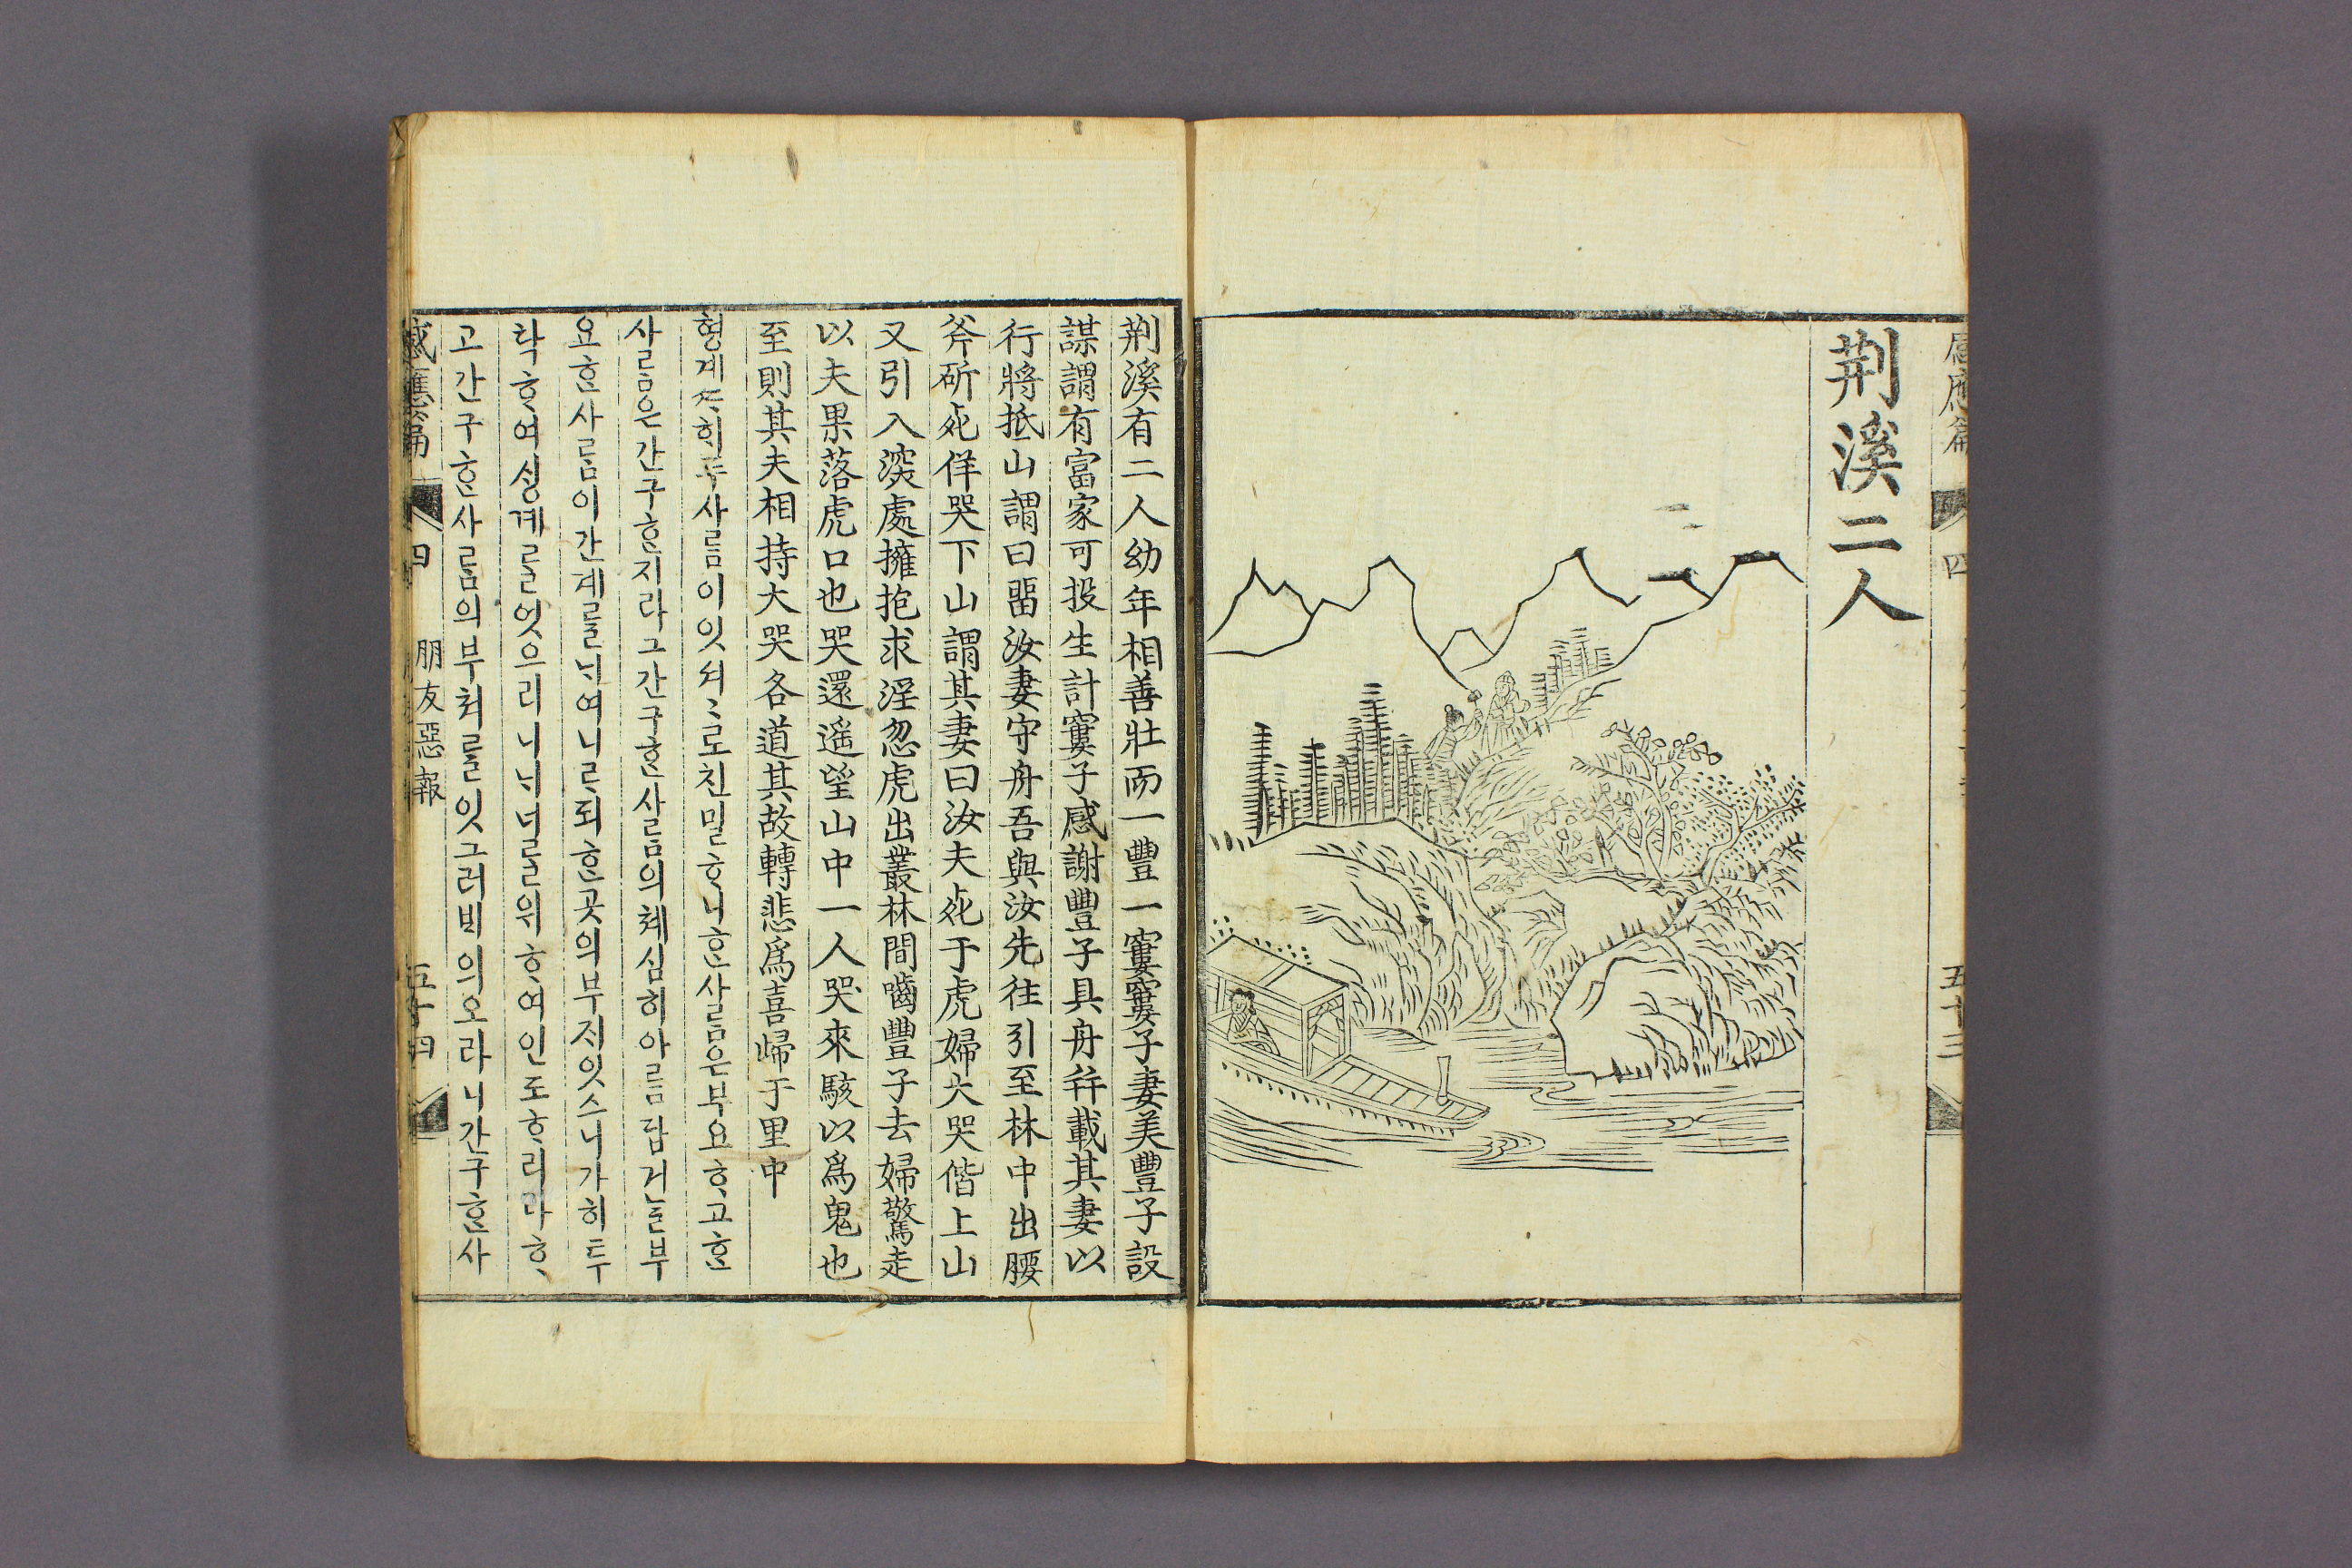 感應篇 四 五十三
荆溪二人
荆溪有二人幼年相善壯而一豐一窶窶子妻美豐子設
謀謂有富家可投生計窶子感謝豐子具舟幷載其妻以
行將抵山謂曰畱汝妻守舟吾與汝先往引至林中出腰
斧斫死佯哭下山謂其妻曰汝夫死于虎婦大哭偕上山
又引入深處擁抱求淫忽虎出叢林間嚙豐子去婦驚走
以夫果落虎口也哭還遙望山中一人哭來駭以爲鬼也
至則其夫相持大哭各道其故轉悲爲喜歸于里中
형계ᄯᆞ희두사ᄅᆞᆷ이잇셔〻로친밀ᄒᆞ니ᄒᆞᆫ사ᄅᆞᆷ은부요ᄒᆞ고ᄒᆞᆫ
사ᄅᆞᆷ은간구ᄒᆞᆫ지라그간구ᄒᆞᆫ사ᄅᆞᆷ의쳬심히아ᄅᆞᆷ답거ᄂᆞᆯ부
요ᄒᆞᆫ사ᄅᆞᆷ이간계ᄅᆞᆯᄂᆡ여니ᄅᆞ되ᄒᆞᆫ곳의부ᄌᆡ잇스니가히투
탁ᄒᆞ여ᄉᆡᆼ계ᄅᆞᆯ엇으리니ᄂᆡ너ᄅᆞᆯ위ᄒᆞ여인도ᄒᆞ리라ᄒᆞ
고간구ᄒᆞᆫ사ᄅᆞᆷ의부쳐ᄅᆞᆯ잇그러ᄇᆡ의오라니간구ᄒᆞᆫ사
感應篇 四 朋友惡報 五十四